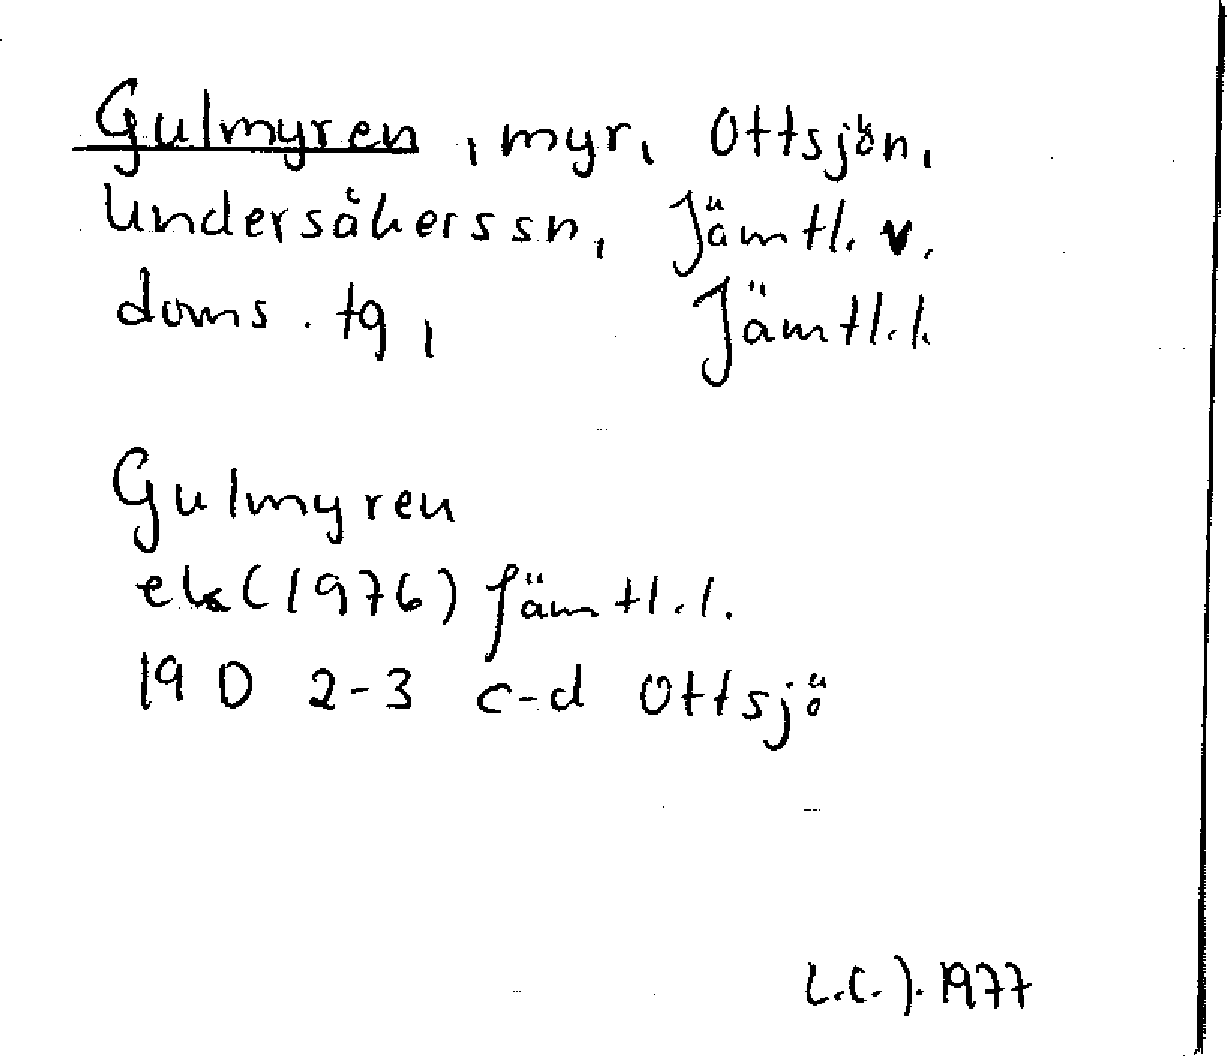 Gulmyren, myr, Ottsjön,
Undersåkers sn, Jämtl. v.
doms. tg, Jämtl. l.
Gulmyren
ek (1976) Jämtl. l.
19 D 2-3 c-d Ottsjö
L.C.J. 1977